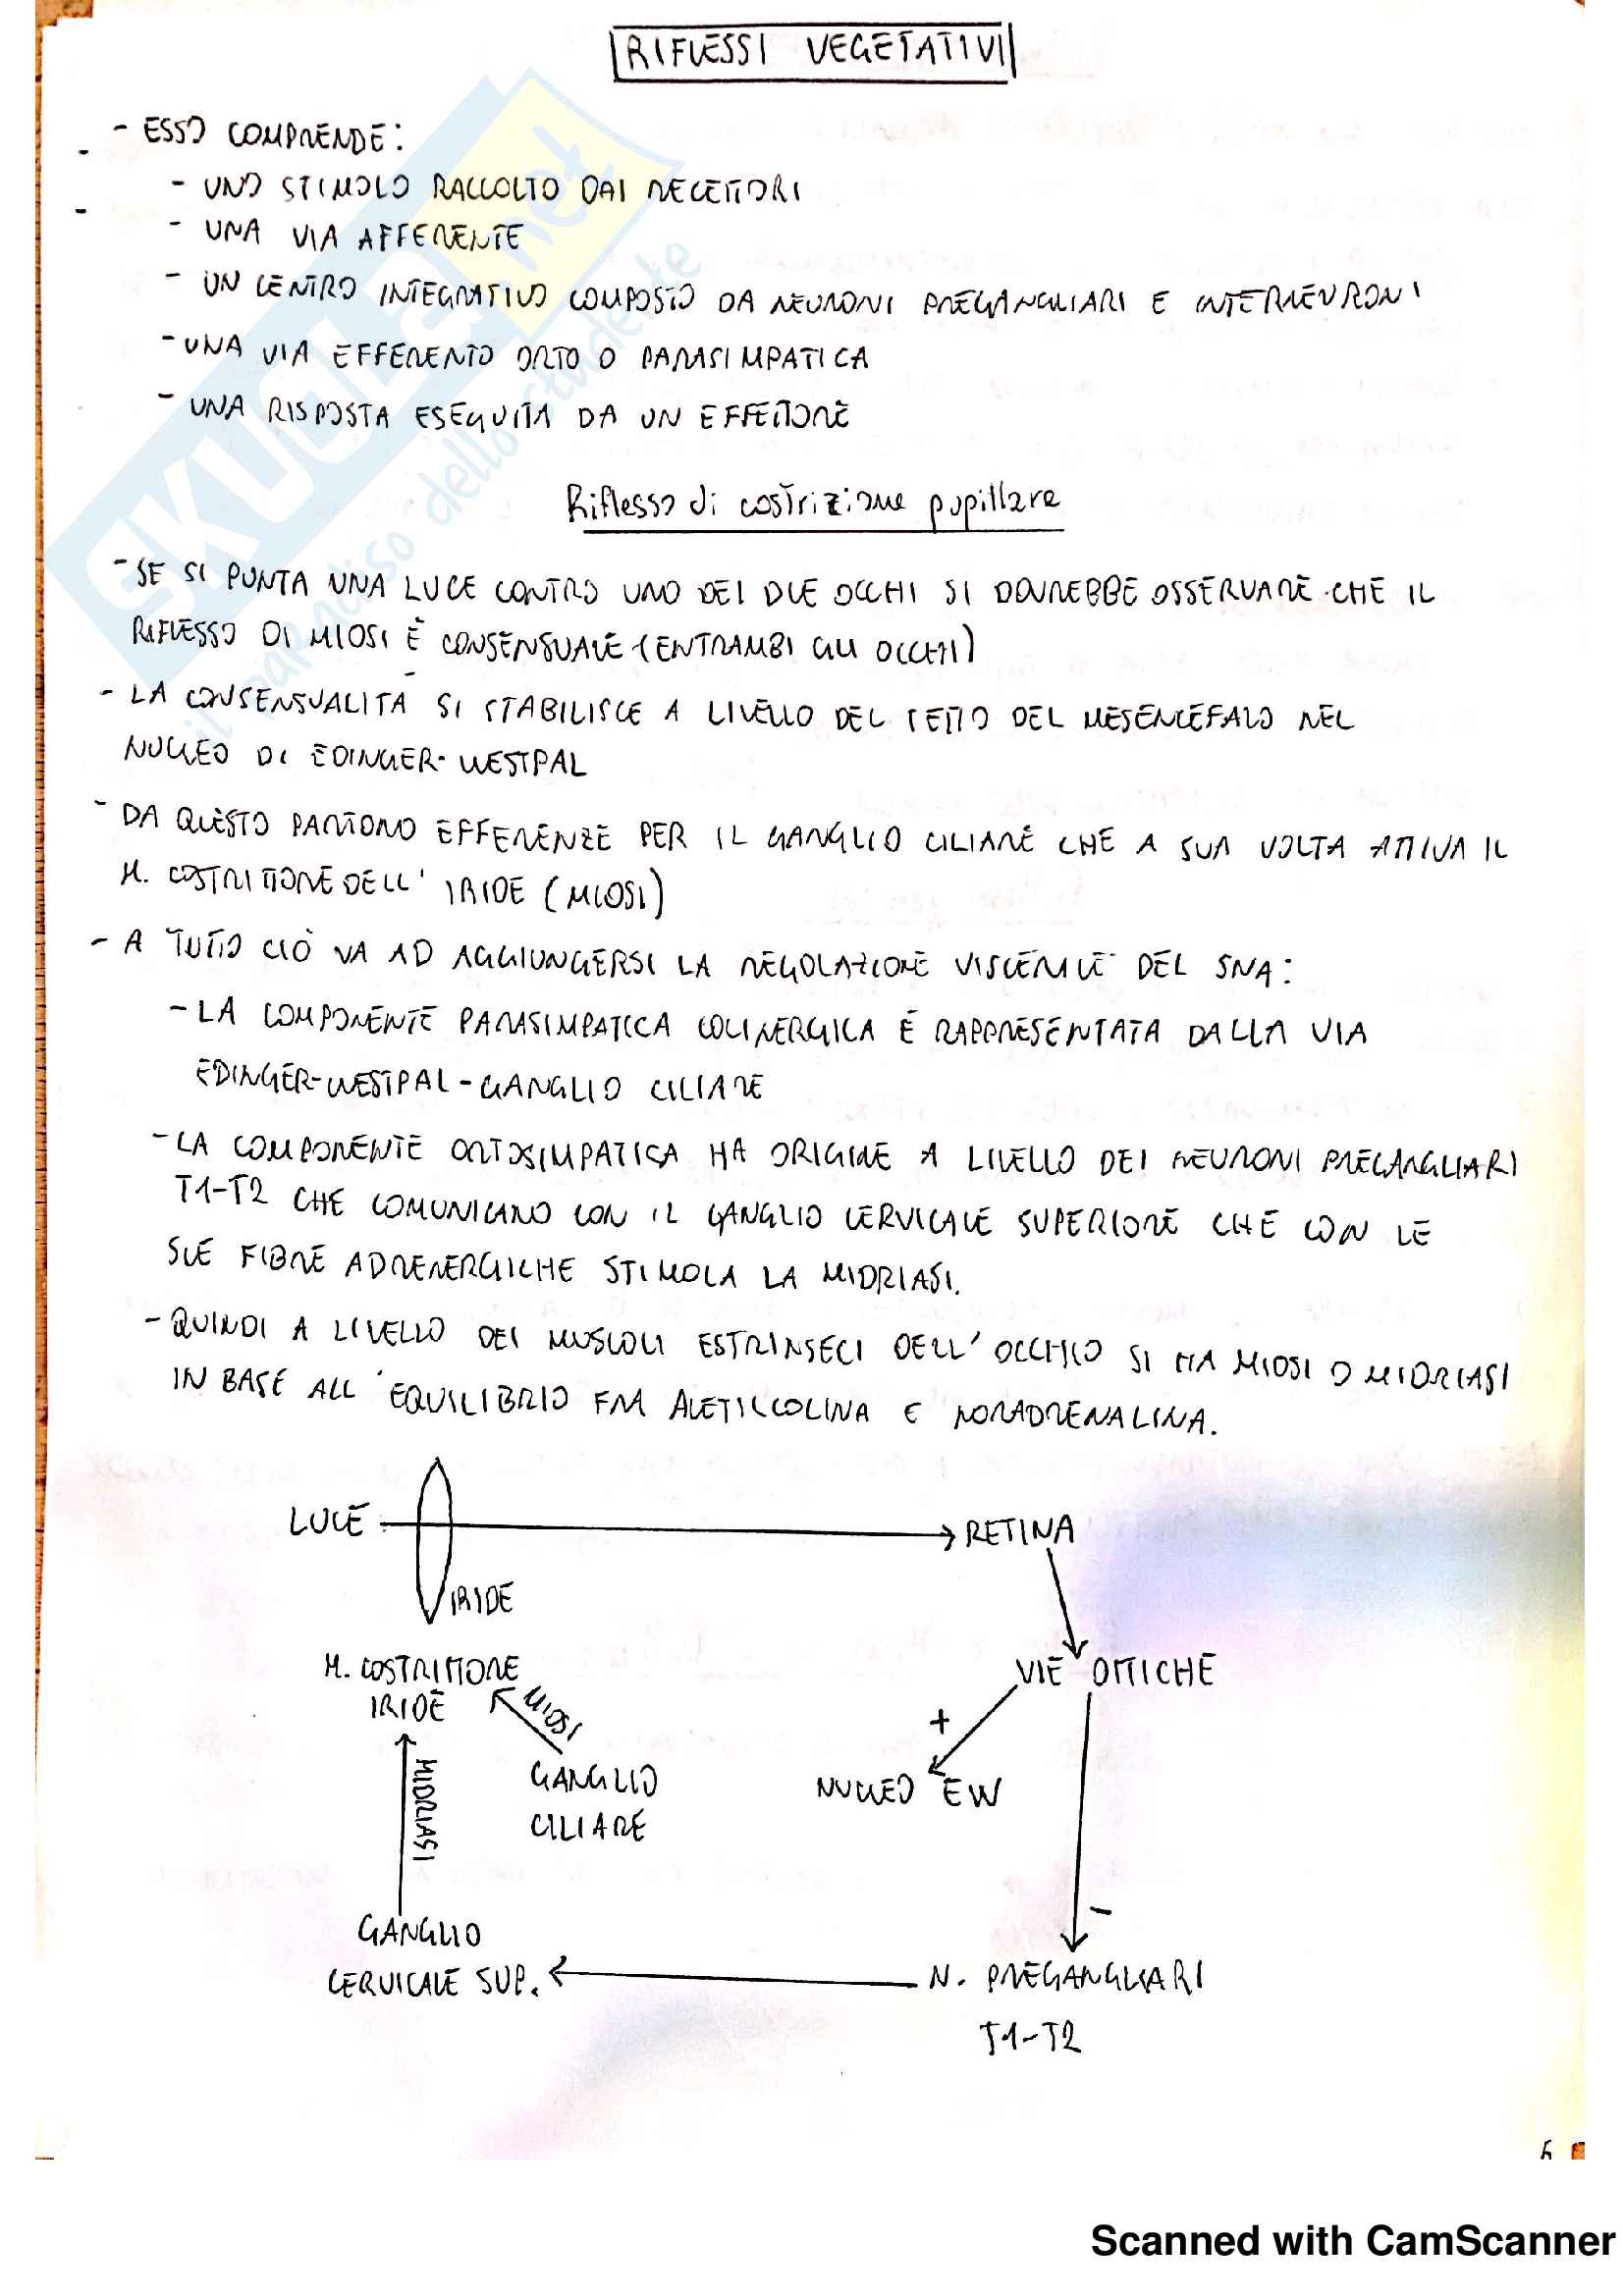 RIFLESSI VEGETATIVI
- ESSO COMPRENDE:
- UNO STIMOLO RACCOLTO DAI RECETTORI
- UNA VIA AFFERENTE
- UN CENTRO INTEGRATIVO COMPOSTO DA NEURONI PREGANGLIARI E INTERNEURONI
- UNA VIA EFFERENTO ORTO O PARASIMPATICA
- UNA RISPOSTA ESEGUITA DA UN EFFETTORE
Riflesso di costrizione pupillare
- SE SI PUNTA UNA LUCE CONTRO UNO DEI DUE OCCHI SI DOVREBBE OSSERVARE CHE IL
RIFLESSO DI MIOSI È CONSENSUALE (ENTRAMBI GLI OCCHI)
- LA CONSENSUALITÀ SI STABILISCE A LIVELLO DEL TETTO DEL MESENCEFALO NEL
NUCLEO DI EDINGER-WESTPAL
- DA QUESTO PARTONO EFFERENZE PER IL GANGLIO CILIARE CHE A SUA VOLTA ATTIVA IL
M. COSTRITTORE DELL'IRIDE (MIOSI)
- A TUTTO CIÒ VA AD AGGIUNGERSI LA REGOLAZIONE VISCERALE DEL SNA:
- LA COMPONENTE PARASIMPATICA COLINERGICA È RAPPRESENTATA DALLA VIA
EDINGER-WESTPAL-GANGLIO CILIARE
- LA COMPONENTE ORTOSIMPATICA HA ORIGINE A LIVELLO DEI NEURONI PREGANGLIARI
T1-T2 CHE COMUNICANO CON IL GANGLIO CERVICALE SUPERIORE CHE CON LE
SUE FIBRE ADRENERGICHE STIMOLA LA MIDRIASI.
- QUINDI A LIVELLO DEI MUSCOLI ESTRINSECI DELL'OCCHIO SI HA MIOSI O MIDRIASI
IN BASE ALL'EQUILIBRIO FRA ACETILCOLINA E NORADRENALINA.
LUCE
RETINA
IRIDE
M. COSTRITTORE
IRIDE
VIE OTTICHE
MIOSI
+
GANGLIO
CILIARE
NUCLEO EW
MIDRIASI
-
GANGLIO
CERVICALE SUP.
N. PREGANGLIARI
T1-T2
SKUOLA.net
il paradiso dello studente
Scanned with CamScanner